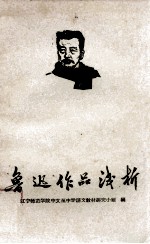 鲁迅作品浅析
辽宁师范学院中文系中学语文教材研究小组 编